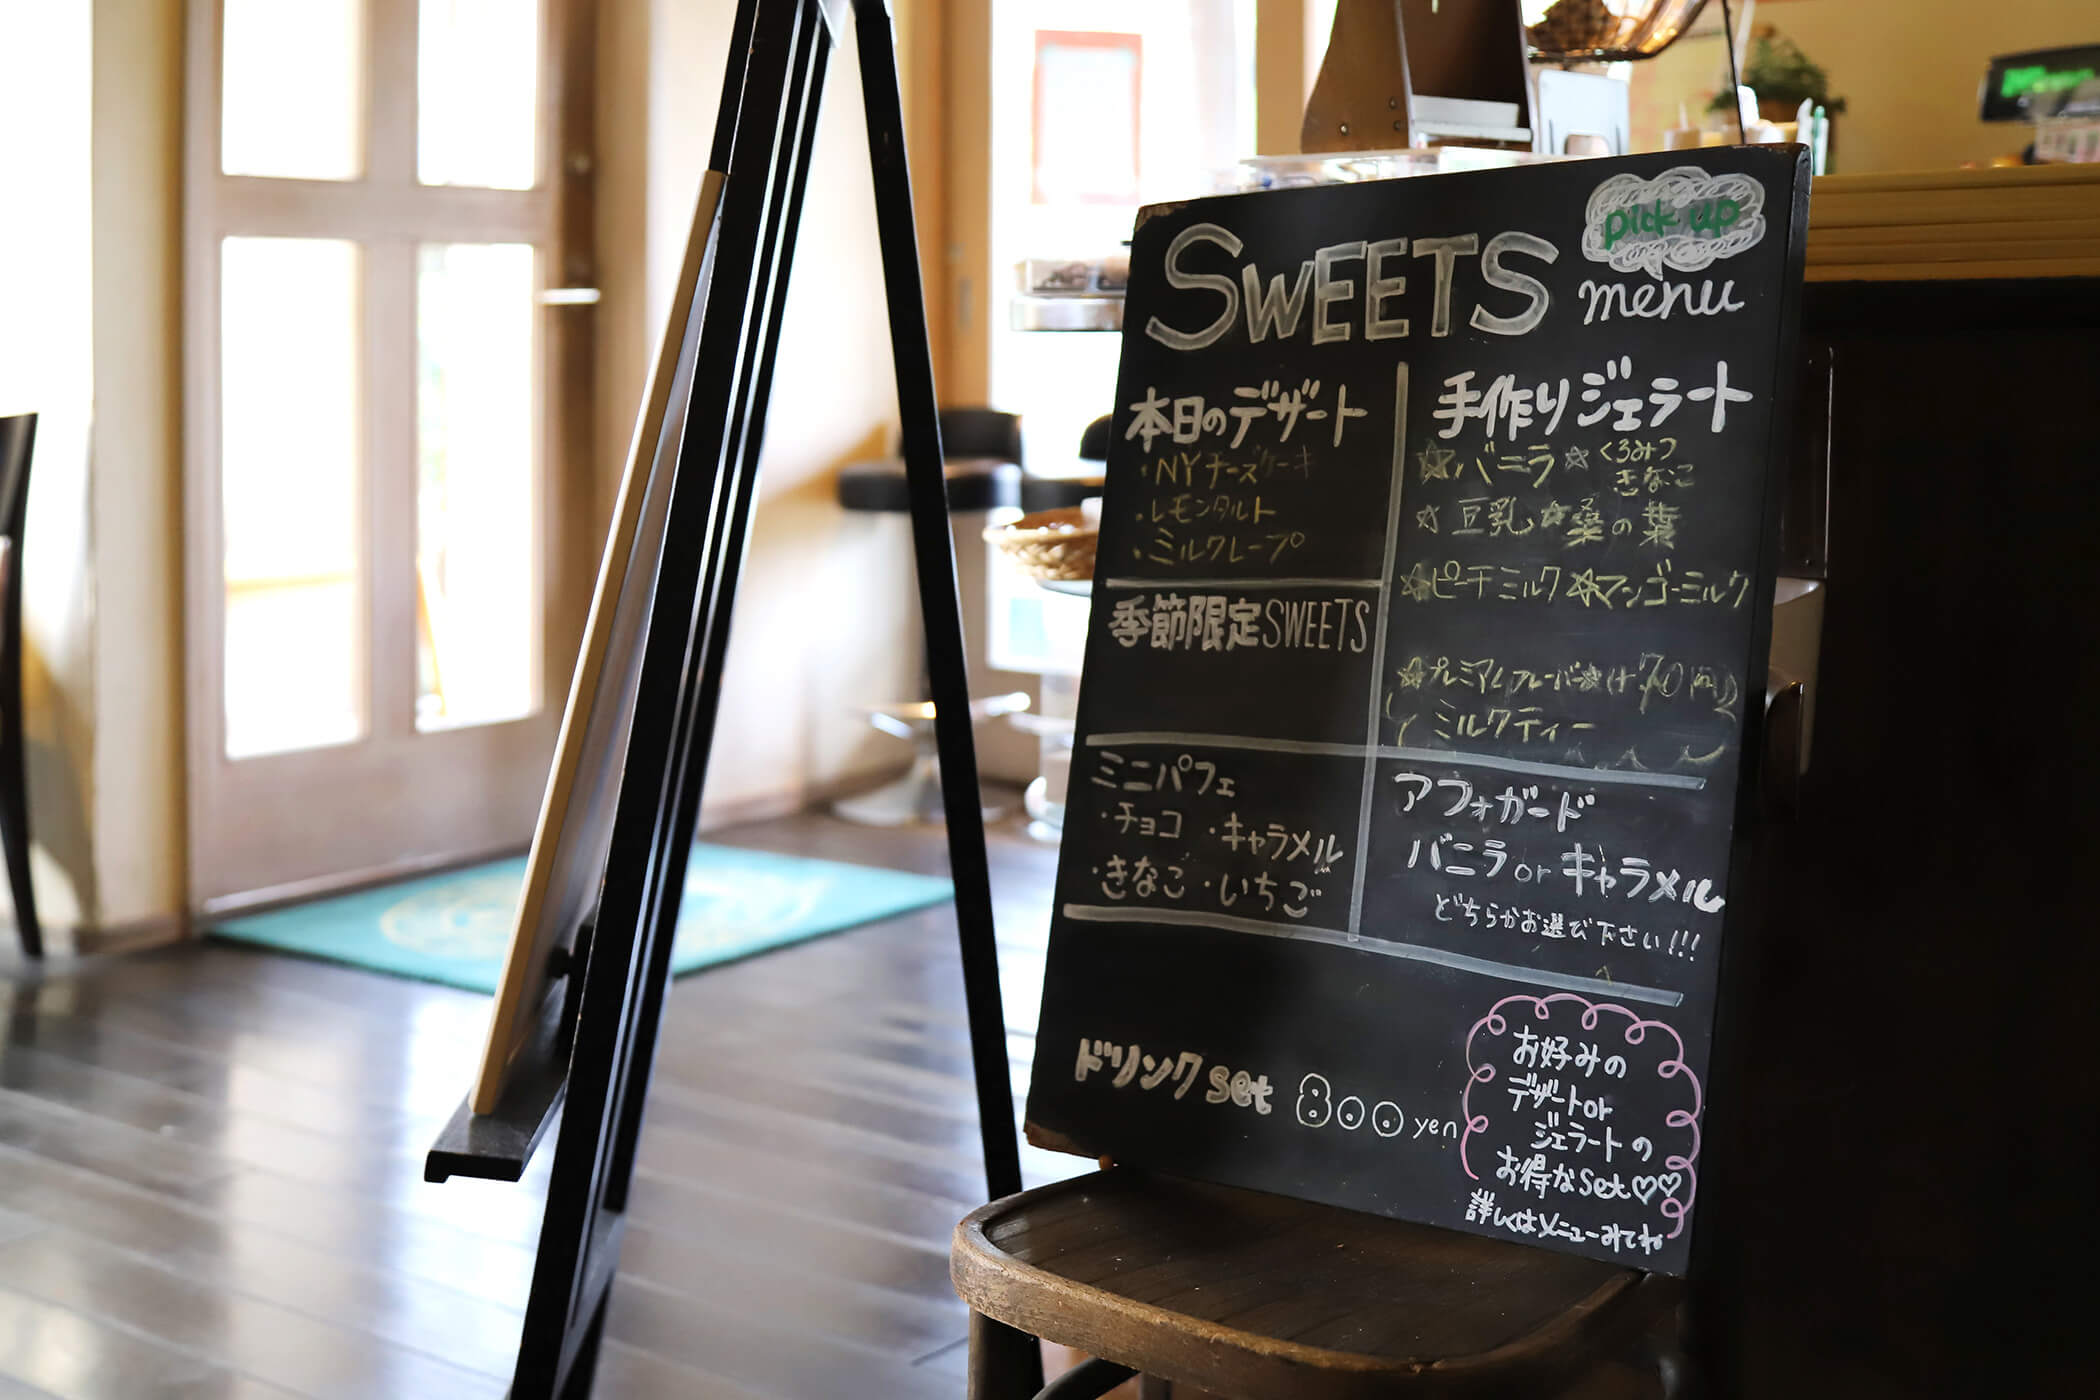 SWEETS
pick up
menu
本日のデザート
・NYチーズケーキ
・レモンタルト
・ミルクレープ
季節限定SWEETS
ミニパフェ
・チョコ ・キャラメル
・きなこ ・いちご
手作りジェラート
☆バニラ ☆くるみつ
きなこ
☆豆乳 ☆桑の葉
☆ピーチミルク ☆マンゴーミルク
☆プレミアムフレーバー☆(+70円)
ミルクティー
アフォガード
バニラorキャラメル
どちらかお選び下さい!!!
ドリンクset 800yen
お好みの
デザートor
ジェラートの
お得なset♡♡
詳しくはメニューみてね